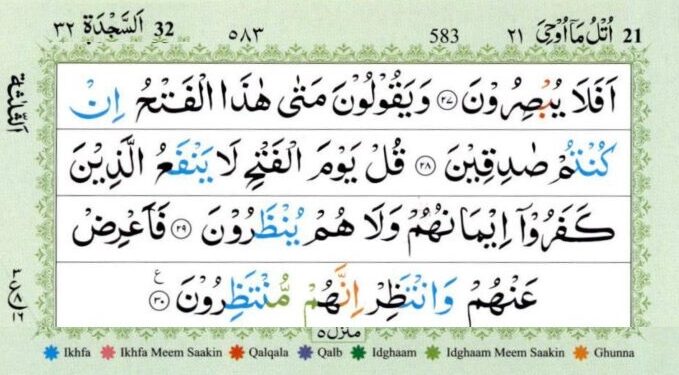 ٣٢ اَلسَّجْدَة 32 ٥٨٣ 583 ٢١ اُتْلُ مَآ اُوْحِیَ 21
اَفَلَا يُبْصِرُوْنَ ﴿٢٧﴾ وَيَقُوْلُوْنَ مَتٰى هٰذَا الْفَتْحُ اِنْ
كُنْتُمْ صٰدِقِيْنَ ﴿٢٨﴾ قُلْ يَوْمَ الْفَتْحِ لَا يَنْفَعُ الَّذِيْنَ
كَفَرُوْٓا اِيْمَانُهُمْ وَلَا هُمْ يُنْظَرُوْنَ ﴿٢٩﴾ فَاَعْرِضْ
عَنْهُمْ وَانْتَظِرْ اِنَّهُمْ مُّنْتَظِرُوْنَ ﴿٣٠﴾ ع
منزل ٥
Ikhfa Ikhfa Meem Saakin Qalqala Qalb Idghaam Idghaam Meem Saakin Ghunna